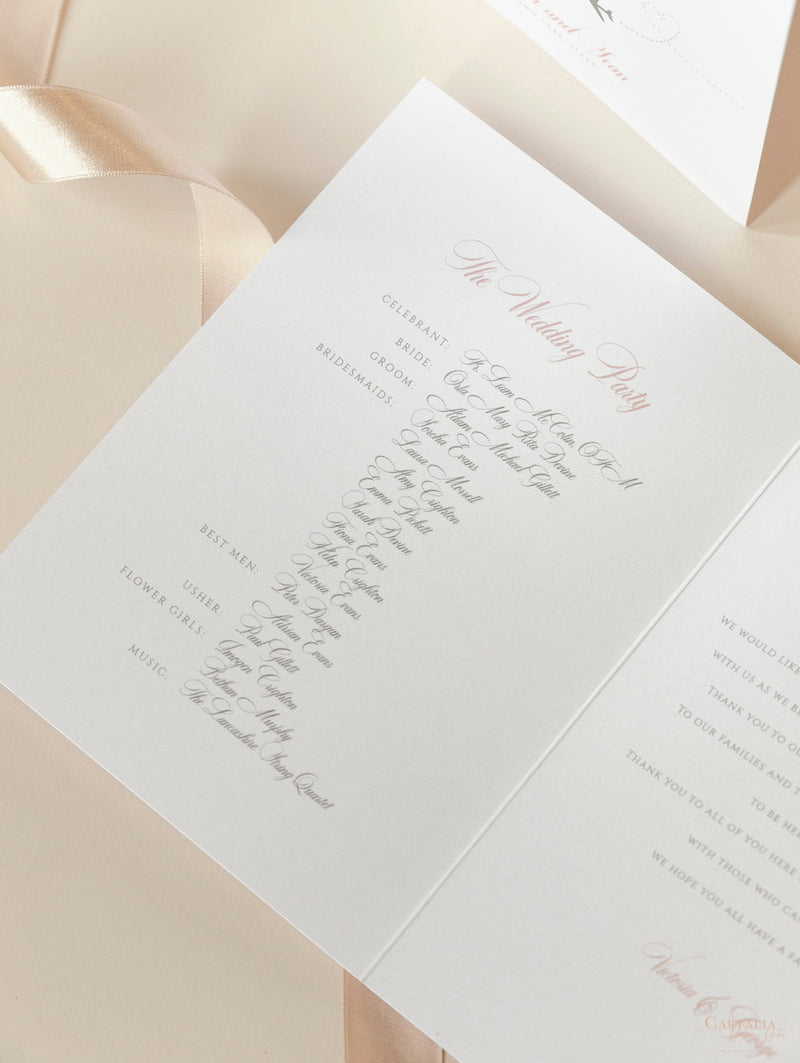 and Sean
The Wedding Party
CELEBRANT: Fr. Liam McColin, OFM
BRIDE: Orla Mary Rita Devine
GROOM: Adam Michael Gillett
BRIDESMAIDS: Sorcha Evans
Laura Morrell
Amy Crighton
Emma Pickett
Sarah Devine
Fiona Evans
Helen Crighton
Victoria Evans
BEST MEN: Peter Dargan
Adrian Evans
USHER: Paul Gillett
FLOWER GIRLS: Imogen Crighton
Bethan Murphy
MUSIC: The Lancashire String Quartet
WE WOULD LIKE
WITH US AS WE BE
THANK YOU TO OU
TO OUR FAMILIES AND T
TO BE HE
THANK YOU TO ALL OF YOU HERE
WITH THOSE WHO CA
WE HOPE YOU ALL HAVE A FA
Victoria & George
CARTALIA